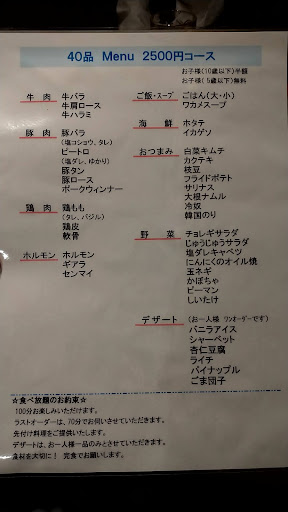 40品 Menu 2500円コース
お子様(10歳以下)半額
お子様(5歳以下)無料
牛肉 牛バラ
牛肩ロース
牛ハラミ
豚肉 豚バラ
(塩コショウ、タレ)
ピートロ
(塩ダレ、ゆかり)
豚タン
豚ロース
ポークウィンナー
鶏肉 鶏もも
(タレ、バジル)
鶏皮
軟骨
ホルモン ホルモン
ギアラ
センマイ
ご飯・スープ ごはん(大・小)
ワカメスープ
海鮮 ホタテ
イカゲソ
おつまみ 白菜キムチ
カクテキ
枝豆
フライドポテト
サリナス
大根ナムル
冷奴
韓国のり
野菜 チョレギサラダ
じゅうじゅうサラダ
塩ダレキャベツ
にんにくのオイル焼
玉ネギ
かぼちゃ
ピーマン
しいたけ
デザート (お一人様 ワンオーダーです)
バニラアイス
シャーベット
杏仁豆腐
ライチ
パイナップル
ごま団子
☆食べ放題のお約束☆
100分お楽しみいただけます。
ラストオーダーは、70分でお伺いさせていただきます。
先付け料理をご提供いたします。
デザートは、お一人様一品のみとさせていただきます。
食材を大切に! 完食でお願いします。